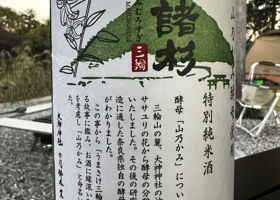 特別純米酒
諸杉
三輪
酵母「山乃かみ」につい
三輪山の麓、大神神社の
ササユリの花から酵母の分
いたしました。その後の研
造に適した奈良県独自の酵
がわかりました。
この事から「うまさけ三輪
る故事に鑑み、お酒に縁深い
を考慮し「山乃かみ」と命名
大神神社